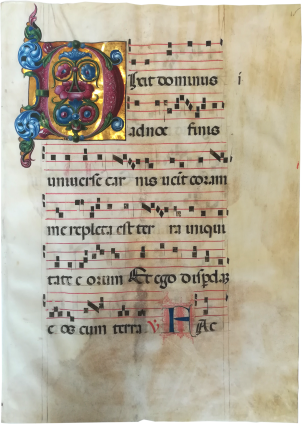 Dixit dominus i
ad noe finis
universe car nis venit coram
me repleta est ter ra iniqui
tate e orum Et ego disperdaz
e os cum terra V H Ac